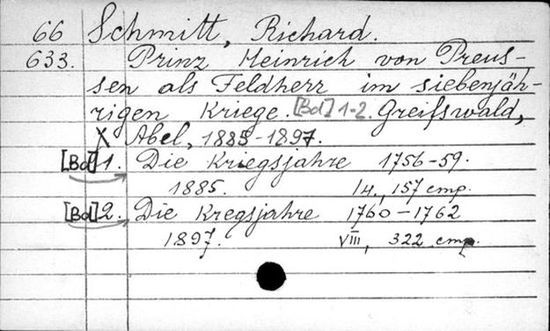 66 Schmitt, Richard.
633. Prinz Heinrich von Preus-
sen als Feldherr im siebenjäh-
rigen Kriege. [Bd] 1-2. Greifswald,
X Abel, 1885-1897.
[Bd] 1. Die Kriegsjahre 1756-59.
1885. 14, 157 стр.
[Bd] 2. Die Kregsjahre 1760-1762
1897. VIII, 322 стр.